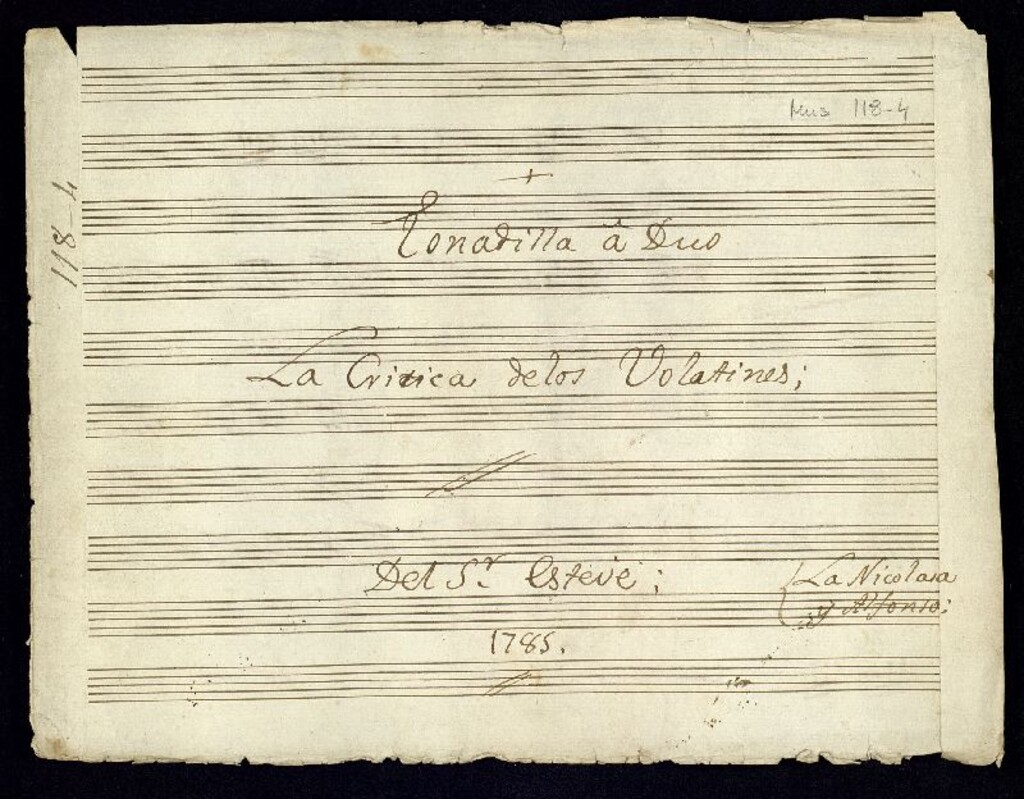 Mus 118-4
118-4
+
Tonadilla â Duo
La Critica delos Volatines;
Del S.r Esteve;
La Nicolasa
y Alfonso;
1785.